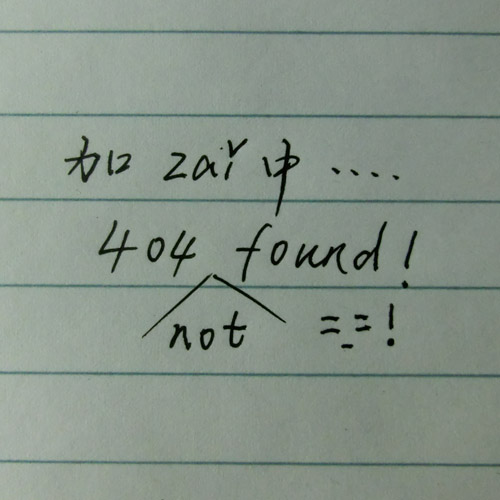 加 zǎi 中 ....
404 found!
not =_=!